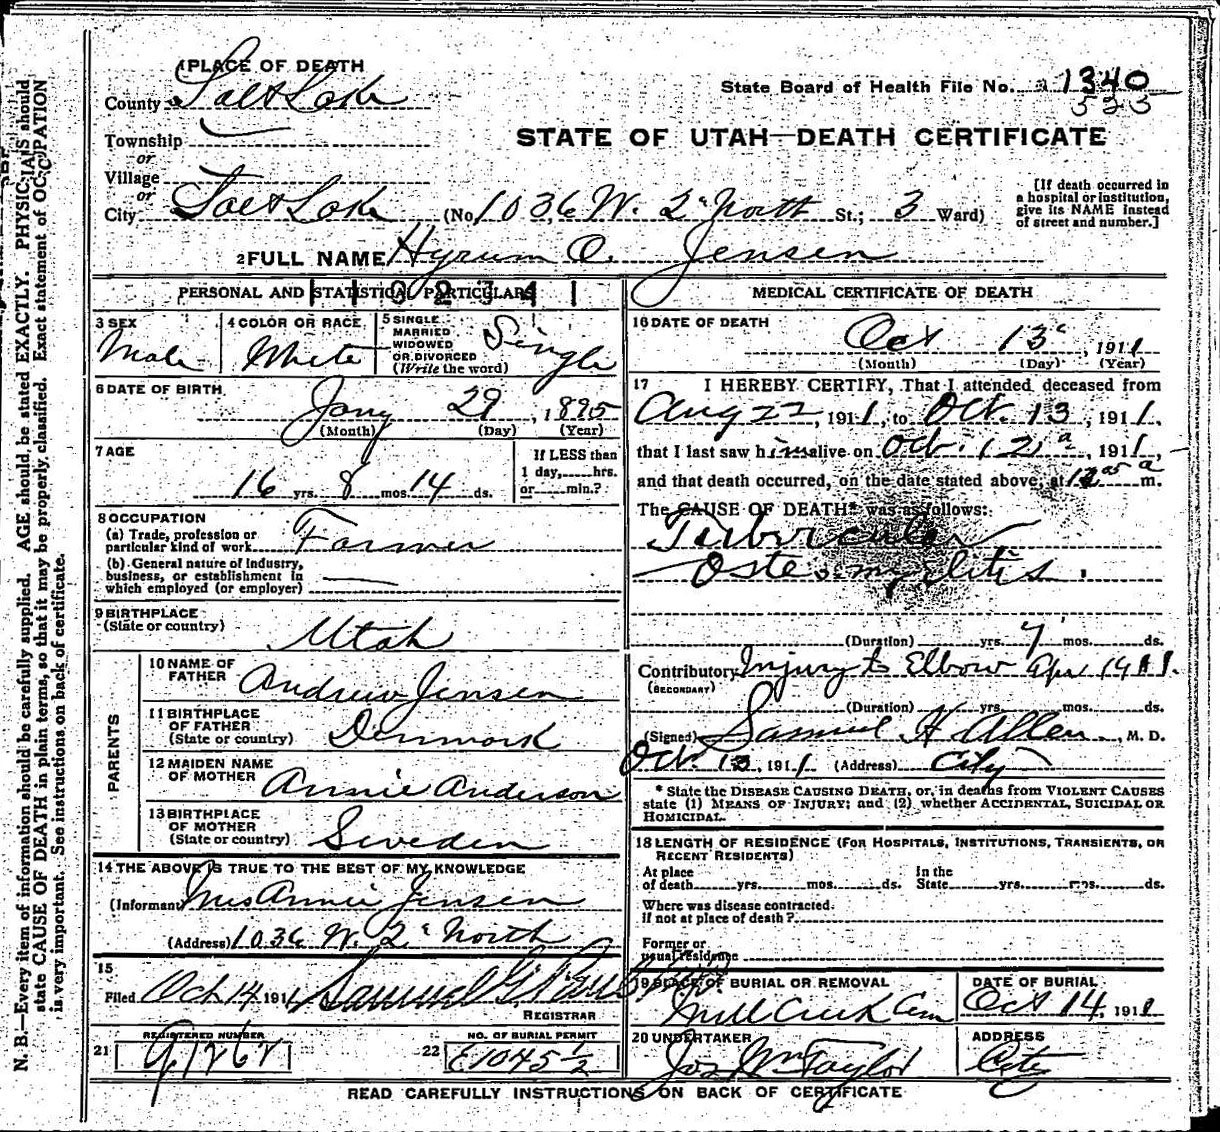 1 PLACE OF DEATH
County Salt Lake
State Board of Health File No. 1340
523
STATE OF UTAH—DEATH CERTIFICATE
Township
or
Village
or
City Salt Lake (No. 1036 W. 2d North St.; 3 Ward)
[If death occurred in a hospital or institution, give its NAME instead of street and number.]
2 FULL NAME Hyrum O. Jensen
PERSONAL AND STATISTICAL PARTICULARS
3 SEX
Male
4 COLOR OR RACE
White
5 SINGLE
MARRIED
WIDOWED
OR DIVORCED
(Write the word)
Single
6 DATE OF BIRTH
Jany 29, 1895
(Month) (Day) (Year)
7 AGE
16 yrs. 8 mos. 14 ds.
If LESS than
1 day, hrs.
or min.?
8 OCCUPATION
(a) Trade, profession or
particular kind of work Farmer
(b) General nature of industry,
business, or establishment in
which employed (or employer)
9 BIRTHPLACE
(State or country) Utah
PARENTS
10 NAME OF
FATHER Andrew Jensen
11 BIRTHPLACE
OF FATHER
(State or country) Denmark
12 MAIDEN NAME
OF MOTHER Annie Anderson
13 BIRTHPLACE
OF MOTHER
(State or country) Sweden
14 THE ABOVE IS TRUE TO THE BEST OF MY KNOWLEDGE
(Informant Mrs Annie Jensen
(Address) 1036 W. 2d North
15
Filed Oct 14 1911 Samuel G. Paul
REGISTRAR
REGISTERED NUMBER
21
NO. OF BURIAL PERMIT
22 E1045½
MEDICAL CERTIFICATE OF DEATH
16 DATE OF DEATH
Oct 13, 1911
(Month) (Day) (Year)
17 I HEREBY CERTIFY, That I attended deceased from
Aug 22, 1911, to Oct. 13, 1911,
that I last saw him alive on Oct. 12, 1911,
and that death occurred, on the date stated above, at m.
The CAUSE OF DEATH* was as follows:
Tubercular
Osteomyelitis.
(Duration) yrs. 7 mos. ds.
Contributory Injury to Elbow Apr 1911.
(SECONDARY)
(Duration) yrs. mos. ds.
(Signed) Samuel H Allen, M. D.
Oct. 13, 1911 (Address) City
* State the DISEASE CAUSING DEATH, or, in deaths from VIOLENT CAUSES
state (1) MEANS OF INJURY; and (2) whether ACCIDENTAL, SUICIDAL OR
HOMICIDAL.
18 LENGTH OF RESIDENCE (FOR HOSPITALS, INSTITUTIONS, TRANSIENTS, OR
RECENT RESIDENTS)
At place
of death yrs. mos. ds.
In the
State yrs. mos. ds.
Where was disease contracted
if not at place of death?
Former or
usual residence
19 PLACE OF BURIAL OR REMOVAL
Mill Creek Cem
DATE OF BURIAL
Oct 14, 1911
20 UNDERTAKER
Jos Wm Taylor
ADDRESS
City
READ CAREFULLY INSTRUCTIONS ON BACK OF CERTIFICATE
N. B.—Every item of information should be carefully supplied. AGE should be stated EXACTLY. PHYSICIANS should
state CAUSE OF DEATH in plain terms, so that it may be properly classified. Exact statement of OCCUPATION
is very important. See instructions on back of certificate.